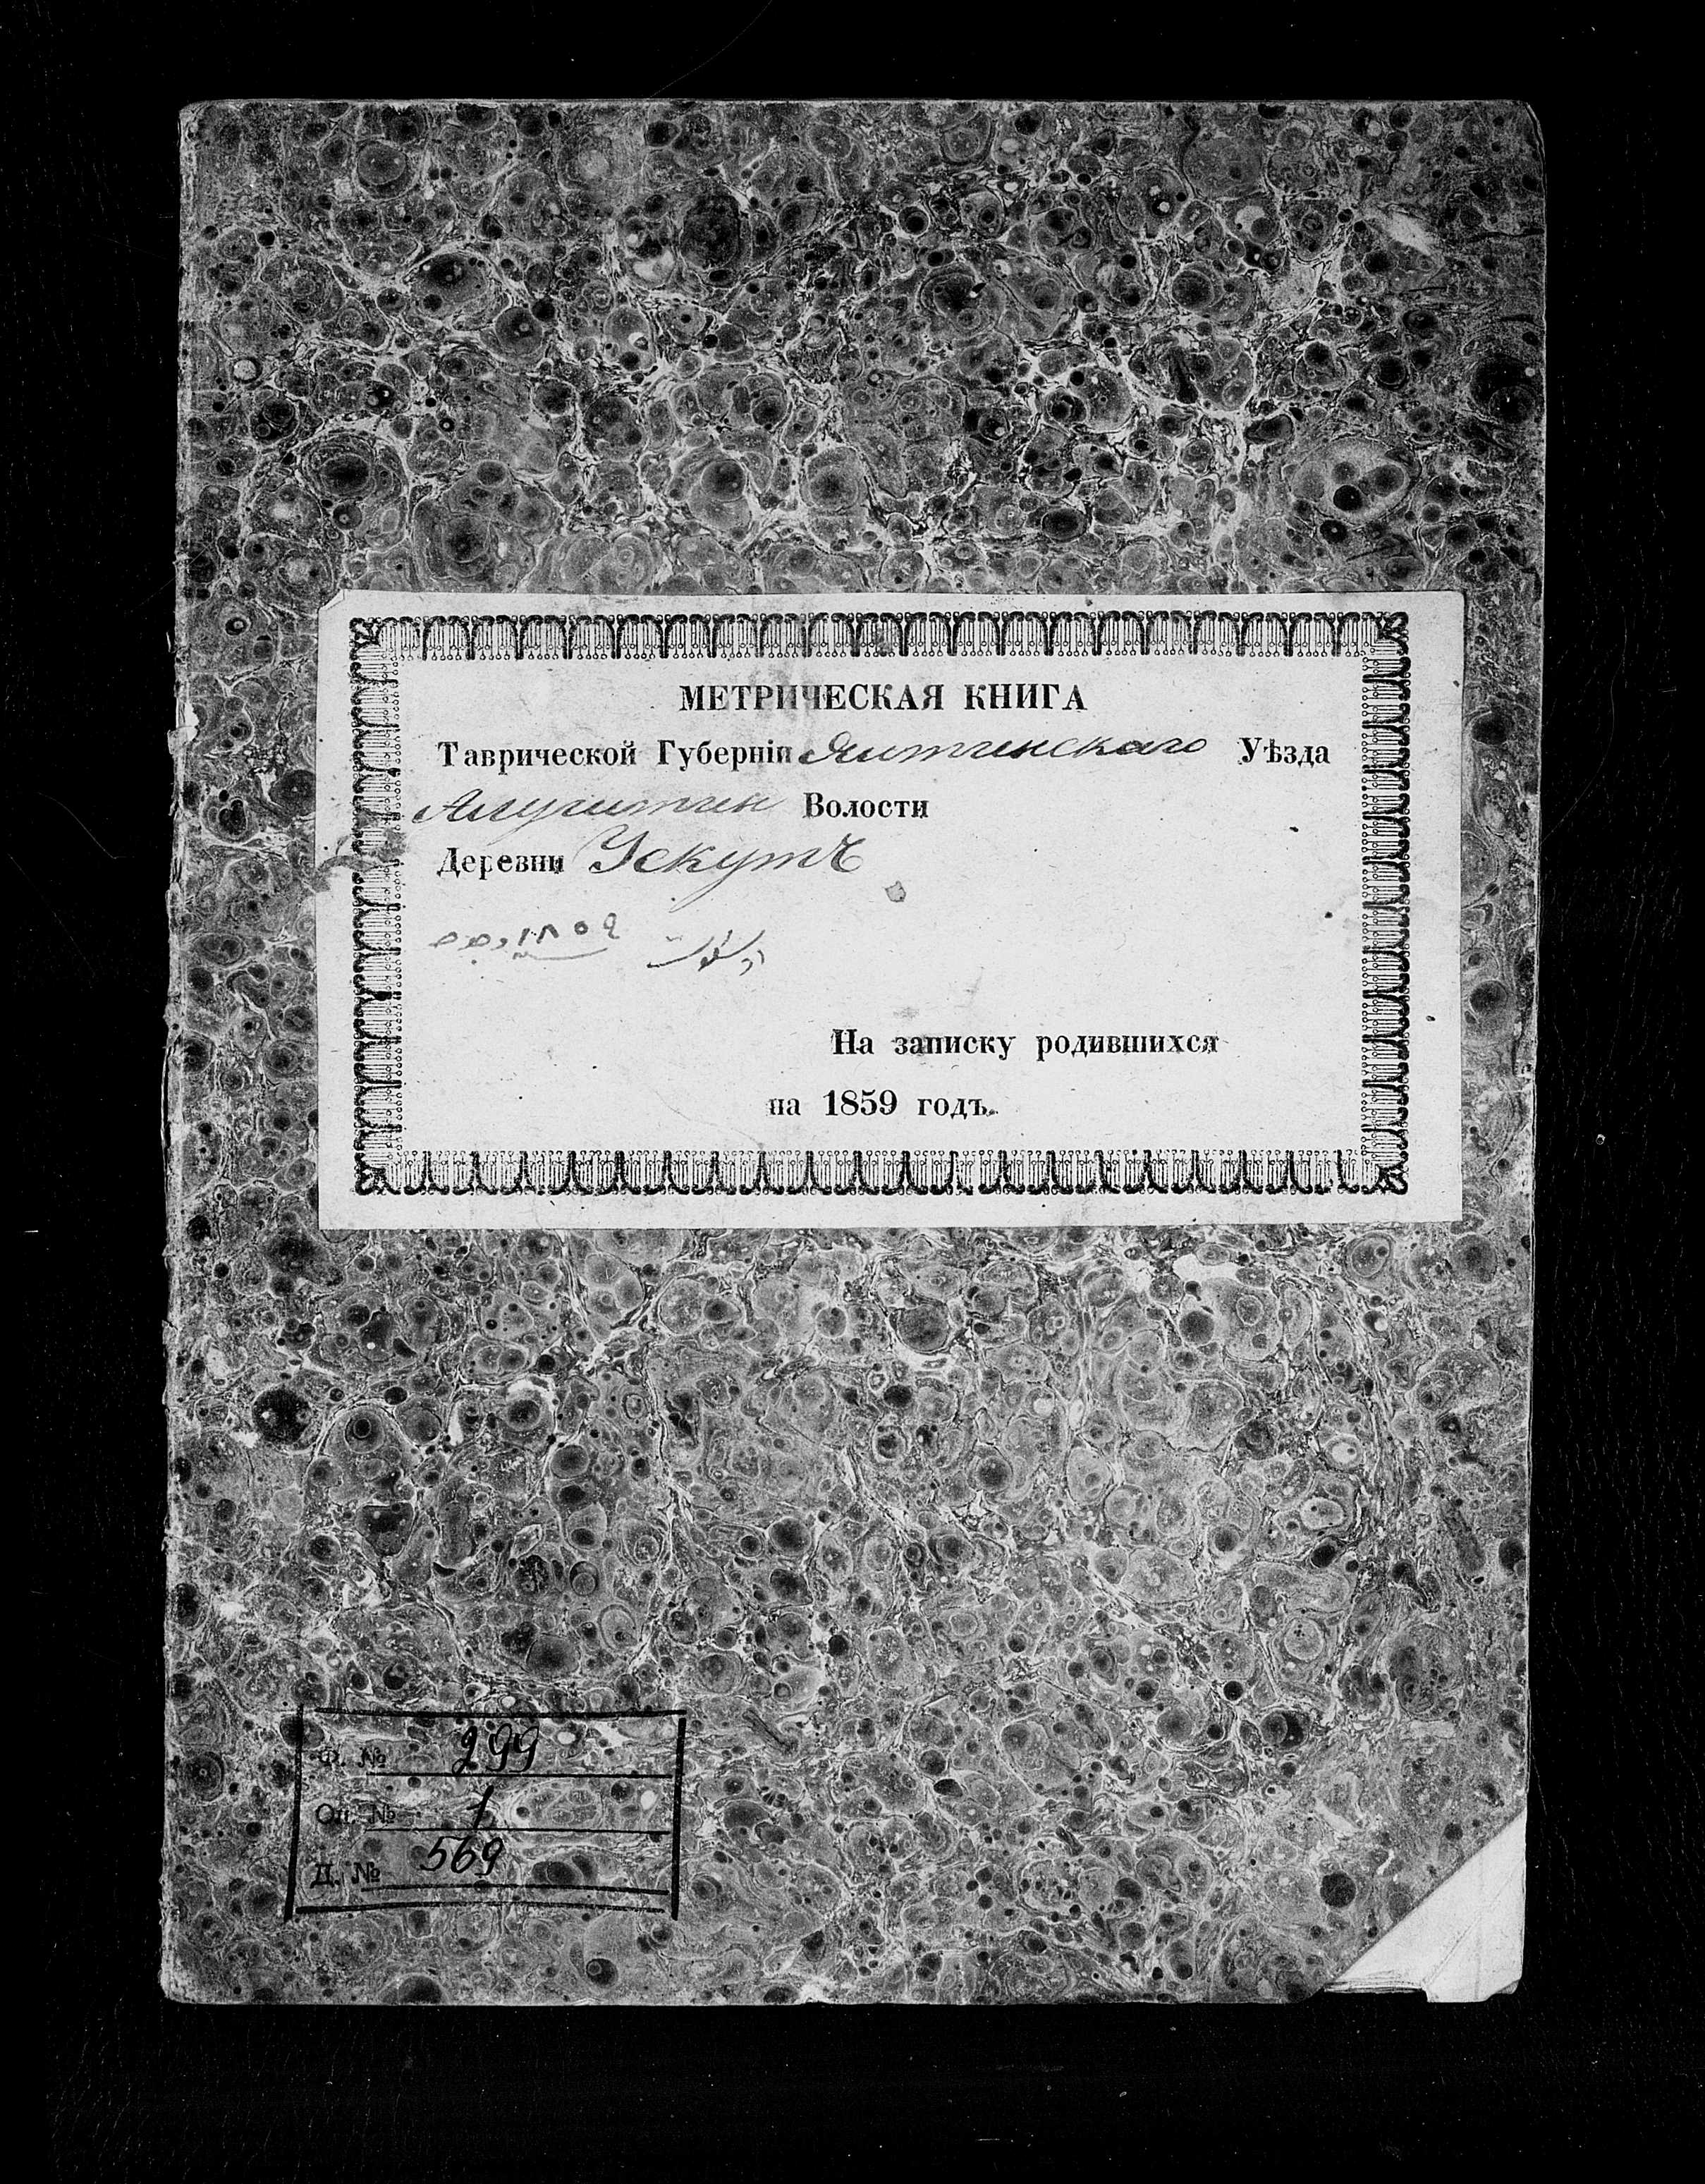 МЕТРИЧЕСКАЯ КНИГА
Таврической Губерніи Ялтинскаго Уѣзда
Алуштин Волости
Деревни Ускутъ
١٨٥٩
На записку родившихся
на 1859 годъ.
Ф. № 299
Оп. № 1
Д. № 569